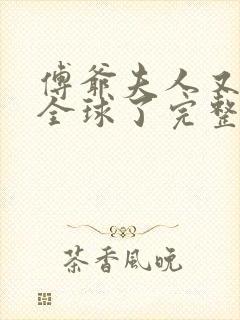 傅爺夫人又
全球了完整
茶香風晚